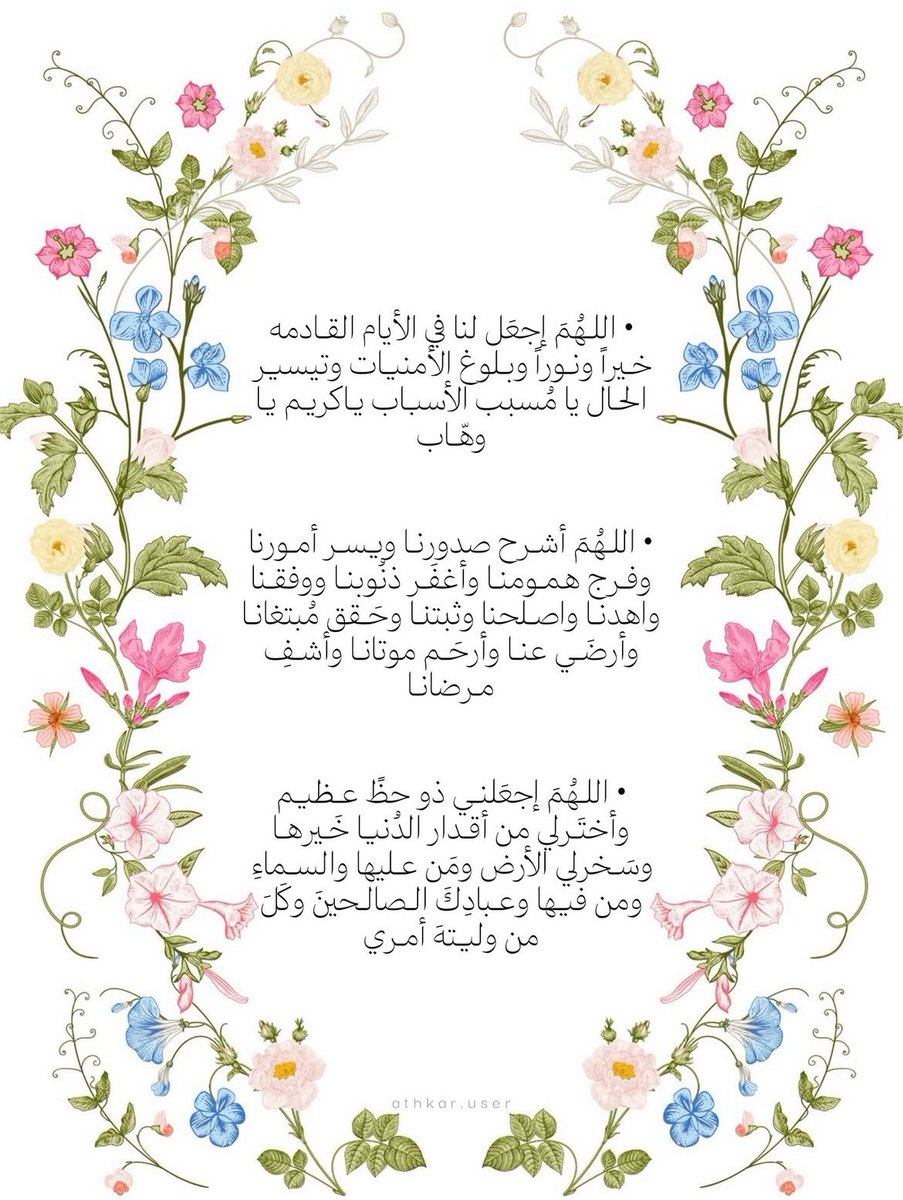 • اللـهُمَ إجعَل لنا في الأيام القـادمه
خـيراً ونـوراً وبـلوغ الأمنيـات وتيسيـر
الحـال يا مُسبب الأسبـاب يـاكريـم يـا
وهّـاب
• اللـهُمَ أشـرح صدورنـا ويـسـر أمـورنا
وفـرج همـومنـا وأغفَـر ذنُوبنـا ووفقـنا
واهدنـا واصـلحنا وثبتنـا وحَـقق مُبتغانـا
وأرضَـي عنـا وأرحَـم موتانـا وأشـفِ
مـرضانـا
• اللـهُمَ إجعَلنـي ذو حـظً عـظيـم
وأختَـرلي من أقـدار الدُنيـا خَـيرهـا
وسَـخرلي الأرض ومَـن عـليها والسـماءِ
ومن فيـها وعـبادِكَ الـصالـحينَ وكَلَ
من وليـتهَ أمـري
athkar.user